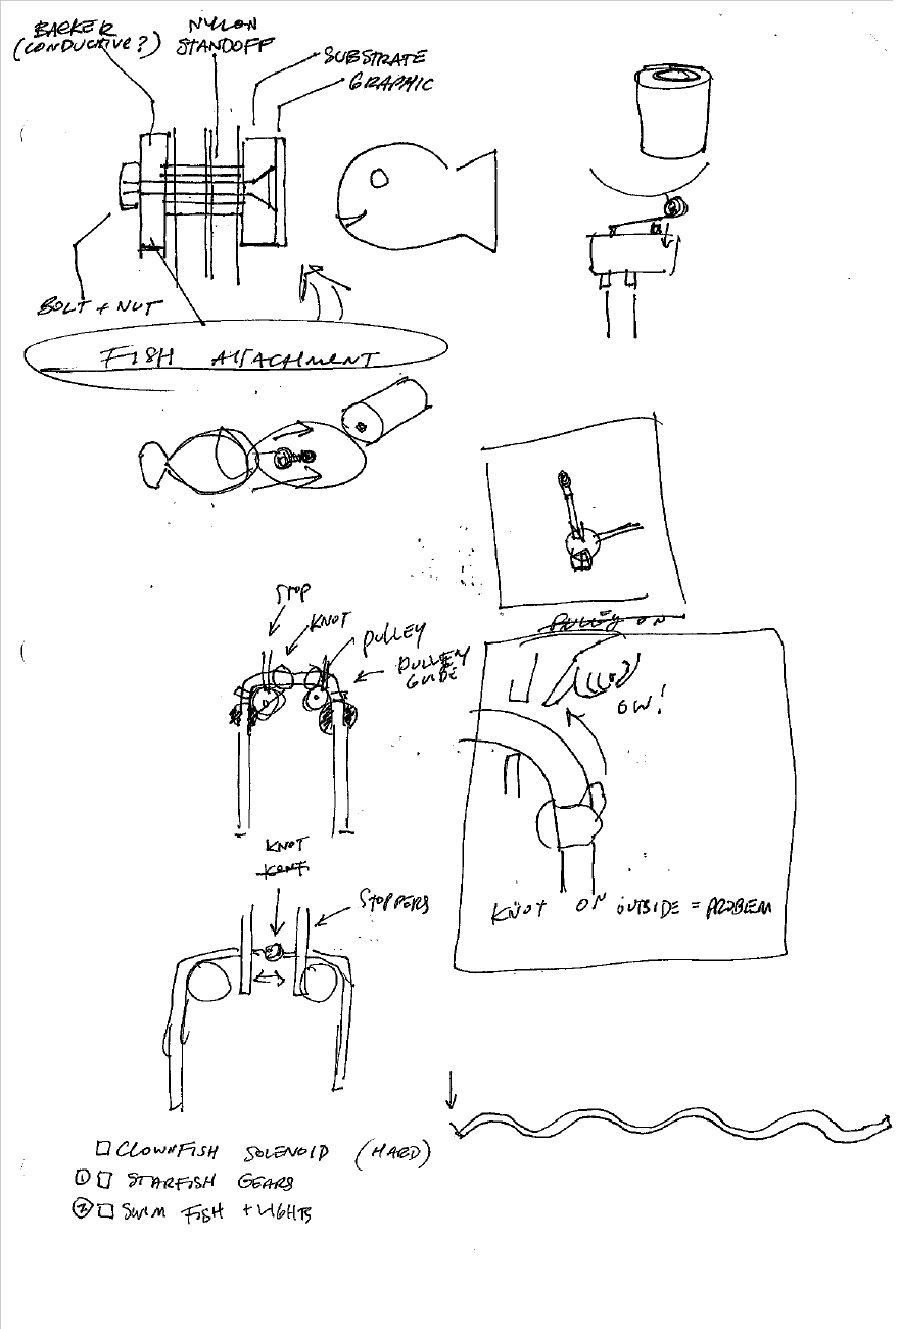 BACKER
(CONDUCTIVE?)
NYLON
STANDOFF
SUBSTRATE
GRAPHIC
BOLT + NUT
FISH ATTACHMENT
STOP
KNOT
PULLEY
PULLEY
GUIDE
PULLEY ON
OW!
KNOT ON OUTSIDE = PROBEM
KNOT
KONT
STOPPERS
CLOWNFISH SOLENOID (HARD)
1 STARFISH GEARS
2 SWIM FISH + LIGHTS